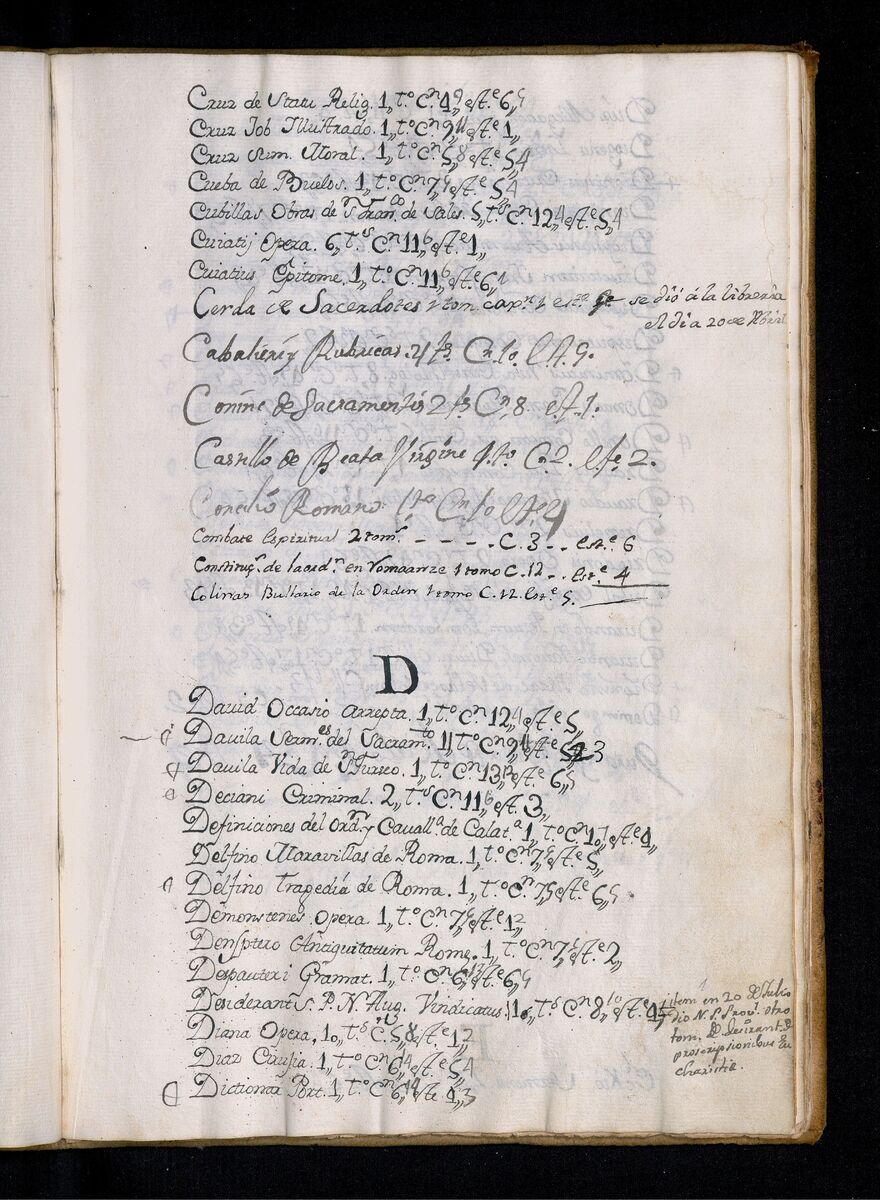 Cruz de Statu Relig. 1,, t.º C.n 4,, 9 est.e 6,, 5
Cruz Job Illustrado. 1,, t.º C.n 9,, 11 est.e 1,,
Cruz Sum. Moral. 1,, t.º C.n 5,, 8 est.e 5,, 4
Cueba de Buelos. 1,, t.º C.n 7,, est.e 5,, 4
Cubillas Obras de S.n Fran.co de Sales. 5,, t.os C.n 12,, 4 est.e 5,, 4
Cuiatij Opera. 6,, t.s C.n 11,, 6 est.e 1,,
Cuiatius Epitome. 1,, t.º C.n 11,, 6 est.e 6,,
Cerda de Sacerdotes 1 tom cax.n 1 est.e se dió á la libreria
el dia 20 de Abril
Cabalierij Rubricas. 4 ts. C.n 10. est. 9.
Coninc de Sacramentis 2 ts C.n 8. est. 1.
Castillo de Beata Virgine 1. to C.n 2. este. 2.
Concilio Romano. 1. to C.n 10 est.e 4
Combate Espiritual 2 tom.s - - - - C. 3 - - est.e 6
Constituç.s de la ord.n en Romanze 1 tomo C. 12 - - Est.e 4
Colinas Bullario de la Orden 1 tomo C. 12. Est.e 5.
D
David Occasio arrepta. 1,, t.º C.n 12,, 4 est.e 5,,
Davila Serm.es del Sacram.to 1,, t.º C.n 9,, 11 est.e 23
Davila Vida de S.n Furseo. 1,, t.º C.n 13,, 12 est.e 6,, 5
Deciani Criminal. 2,, t.s C.n 11,, 6 est. 3,,
Definiciones del Ord.n y Cavall.a de Calat.a 1,, t.º C.n 10,, 7 est.e 4,,
Delfino Maravillas de Roma. 1,, t.º C.n 7,, est.e 5,,
Delfino Tragedia de Roma. 1,, t.º C.n 7,, 5 est.e 6,, 5
Demonstenes Opera. 1,, t.º C.n 7,, est.e 1,, 2
Dempstero Antiquitatum Rome. 1,, t.º C.n 7,, est.e 2,,
Despauteri Gramat. 1,, t.º C.n 6,, 12 est.e 6,,
Desiderants. P. N. Aug. Vindicatus. 1,, t.s C.n 8,, 10 est.e 4,,
item en 20 de Julio
dio N. P. Prov.l otro
tom. de Desirant. de
proscriptionibus Eu
charistiæ.
Diana Opera, 10,, t.s C. 5,, 8 est.e 1,, 2
Diaz Cirujia. 1,, t.º C.n 6,, 14 est.e 5,, 4
Dictionar Port. 1,, t.º C.n 6,, 14 este 4,, 3